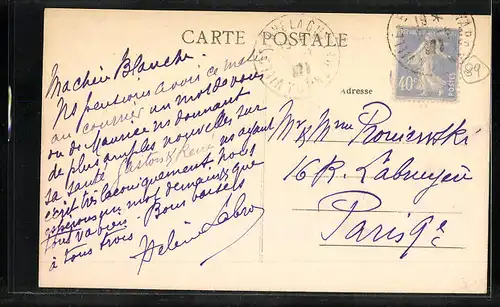 CARTE POSTALE
Adresse
40c
POSTES
89
Ma chère Blanche
Ns pensions avoir ce matin
au courrier un mot de vous
ou de Maurice ns donnant
de plus amples nouvelles sur
sa santé Gaston & René ns ayant
écrit très laconiquement nous
espérons un mot demain & que
tout va bien. Bons baisers
à tous trois.
Hélène Labro
Mr & Mme
16 R. Labruyère
Paris 9e